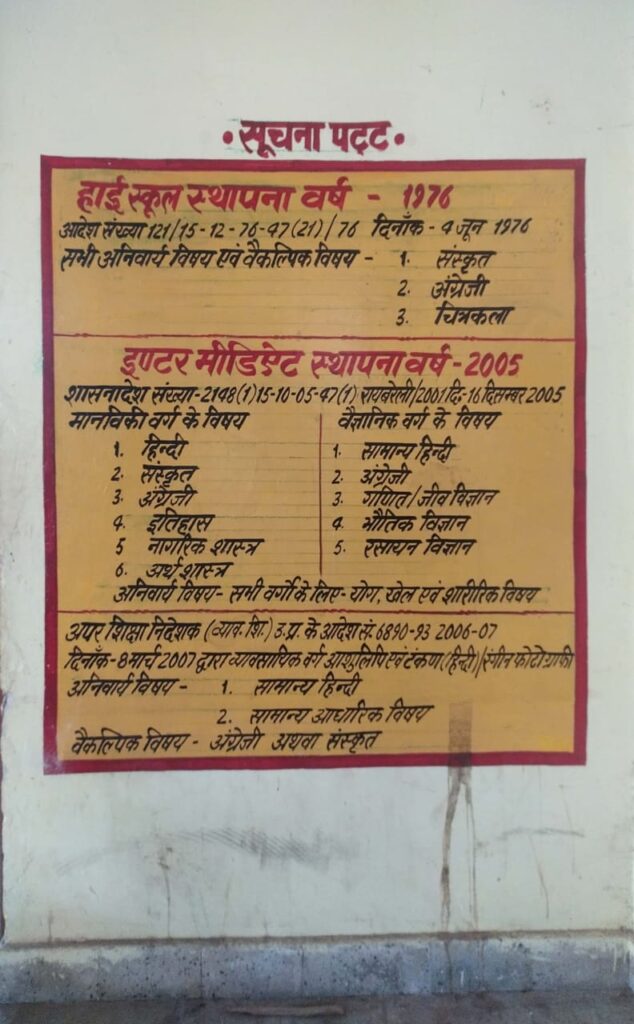 • सूचना पट्ट •
हाई स्कूल स्थापना वर्ष - 1976
आदेश संख्या 121/15-12-76-47(21)/76 दिनाँक - 4 जून 1976
सभी अनिवार्य विषय एवं वैकल्पिक विषय - 1. संस्कृत
2. अंग्रेजी
3. चित्रकला
इण्टर मीडिऐट स्थापना वर्ष - 2005
शासनादेश संख्या-2148(1)15-10-05-47(1) रायबरेली/2001 दि:-16 दिसम्बर 2005
मानविकी वर्ग के विषय
1. हिन्दी
2. संस्कृत
3. अंग्रेजी
4. इतिहास
5 नागरिक शास्त्र
6. अर्थ शास्त्र
वैज्ञानिक वर्ग के विषय
1. सामान्य हिन्दी
2. अंग्रेजी
3. गणित/जीव विज्ञान
4. भौतिक विज्ञान
5. रसायन विज्ञान
अनिवार्य विषय- सभी वर्गों के लिए- योग, खेल एवं शारीरिक विषय
अपर शिक्षा निदेशक (व्याव. शि.) उ.प्र. के आदेश सं. 6890-93 2006-07
दिनाँक-8 मार्च 2007 द्वारा व्यावसायिक वर्ग आशुलिपि एवं टंकण (हिन्दी)/रंगीन फोटोग्राफी
अनिवार्य विषय - 1. सामान्य हिन्दी
2. सामान्य आधारिक विषय
वैकल्पिक विषय - अंग्रेजी अथवा संस्कृत